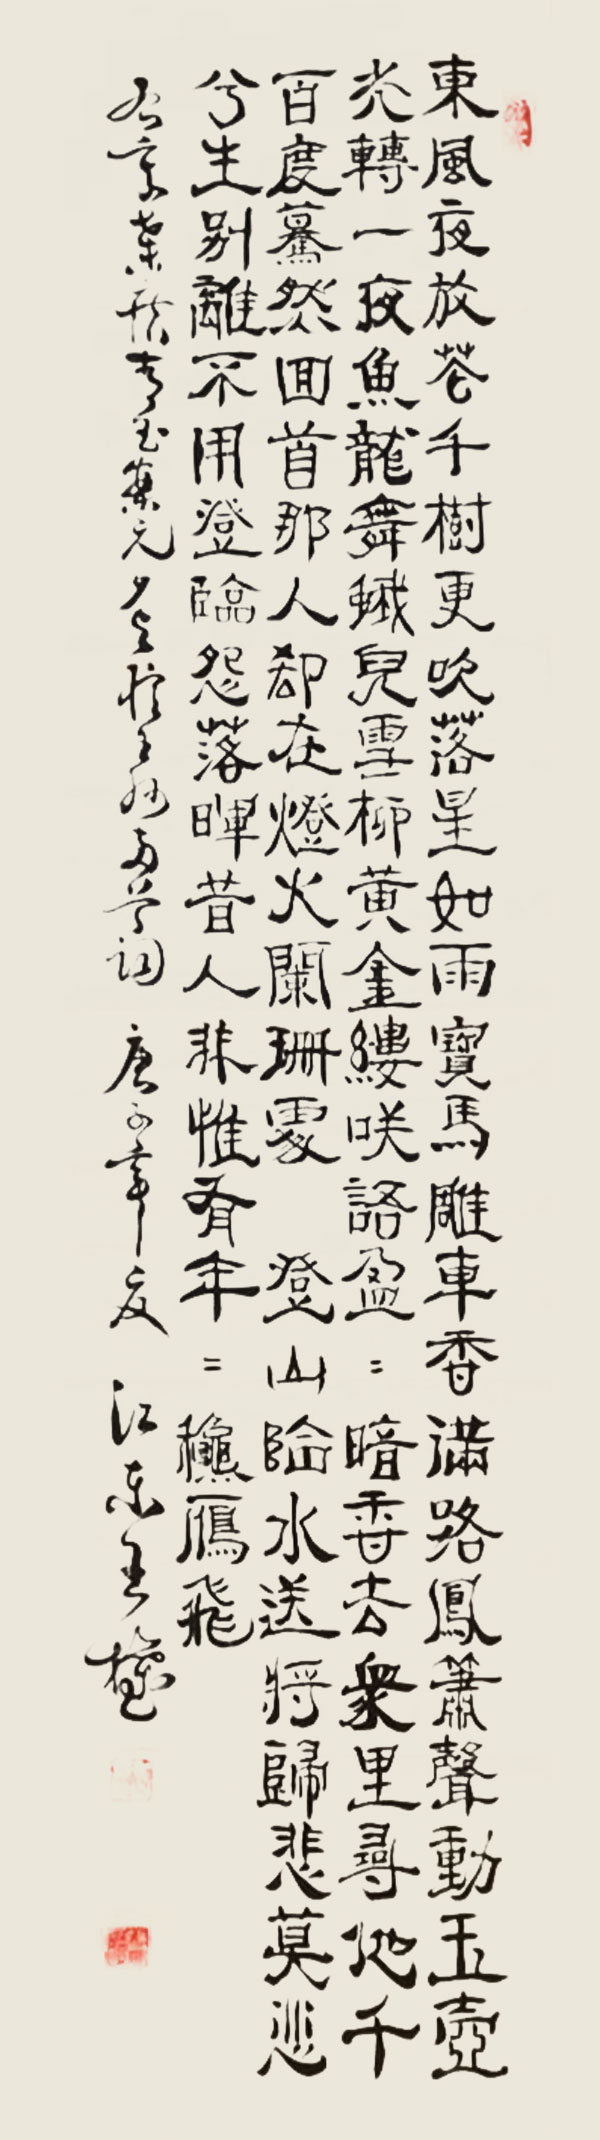 東風夜放花千樹更吹落星如雨寶馬雕車香滿路鳳簫聲動玉壺
光轉一夜魚龍舞蛾兒雪柳黃金縷咲語盈=暗香去衆里尋他千
百度驀然回首那人却在燈火闌珊處 登山臨水送將歸悲莫悲
兮生別離不用登臨怨落暉昔人非惟有年=穐鴈飛
右辛棄疾青玉案元夕與憶王孫兩首詞 庚子年夏 江东王